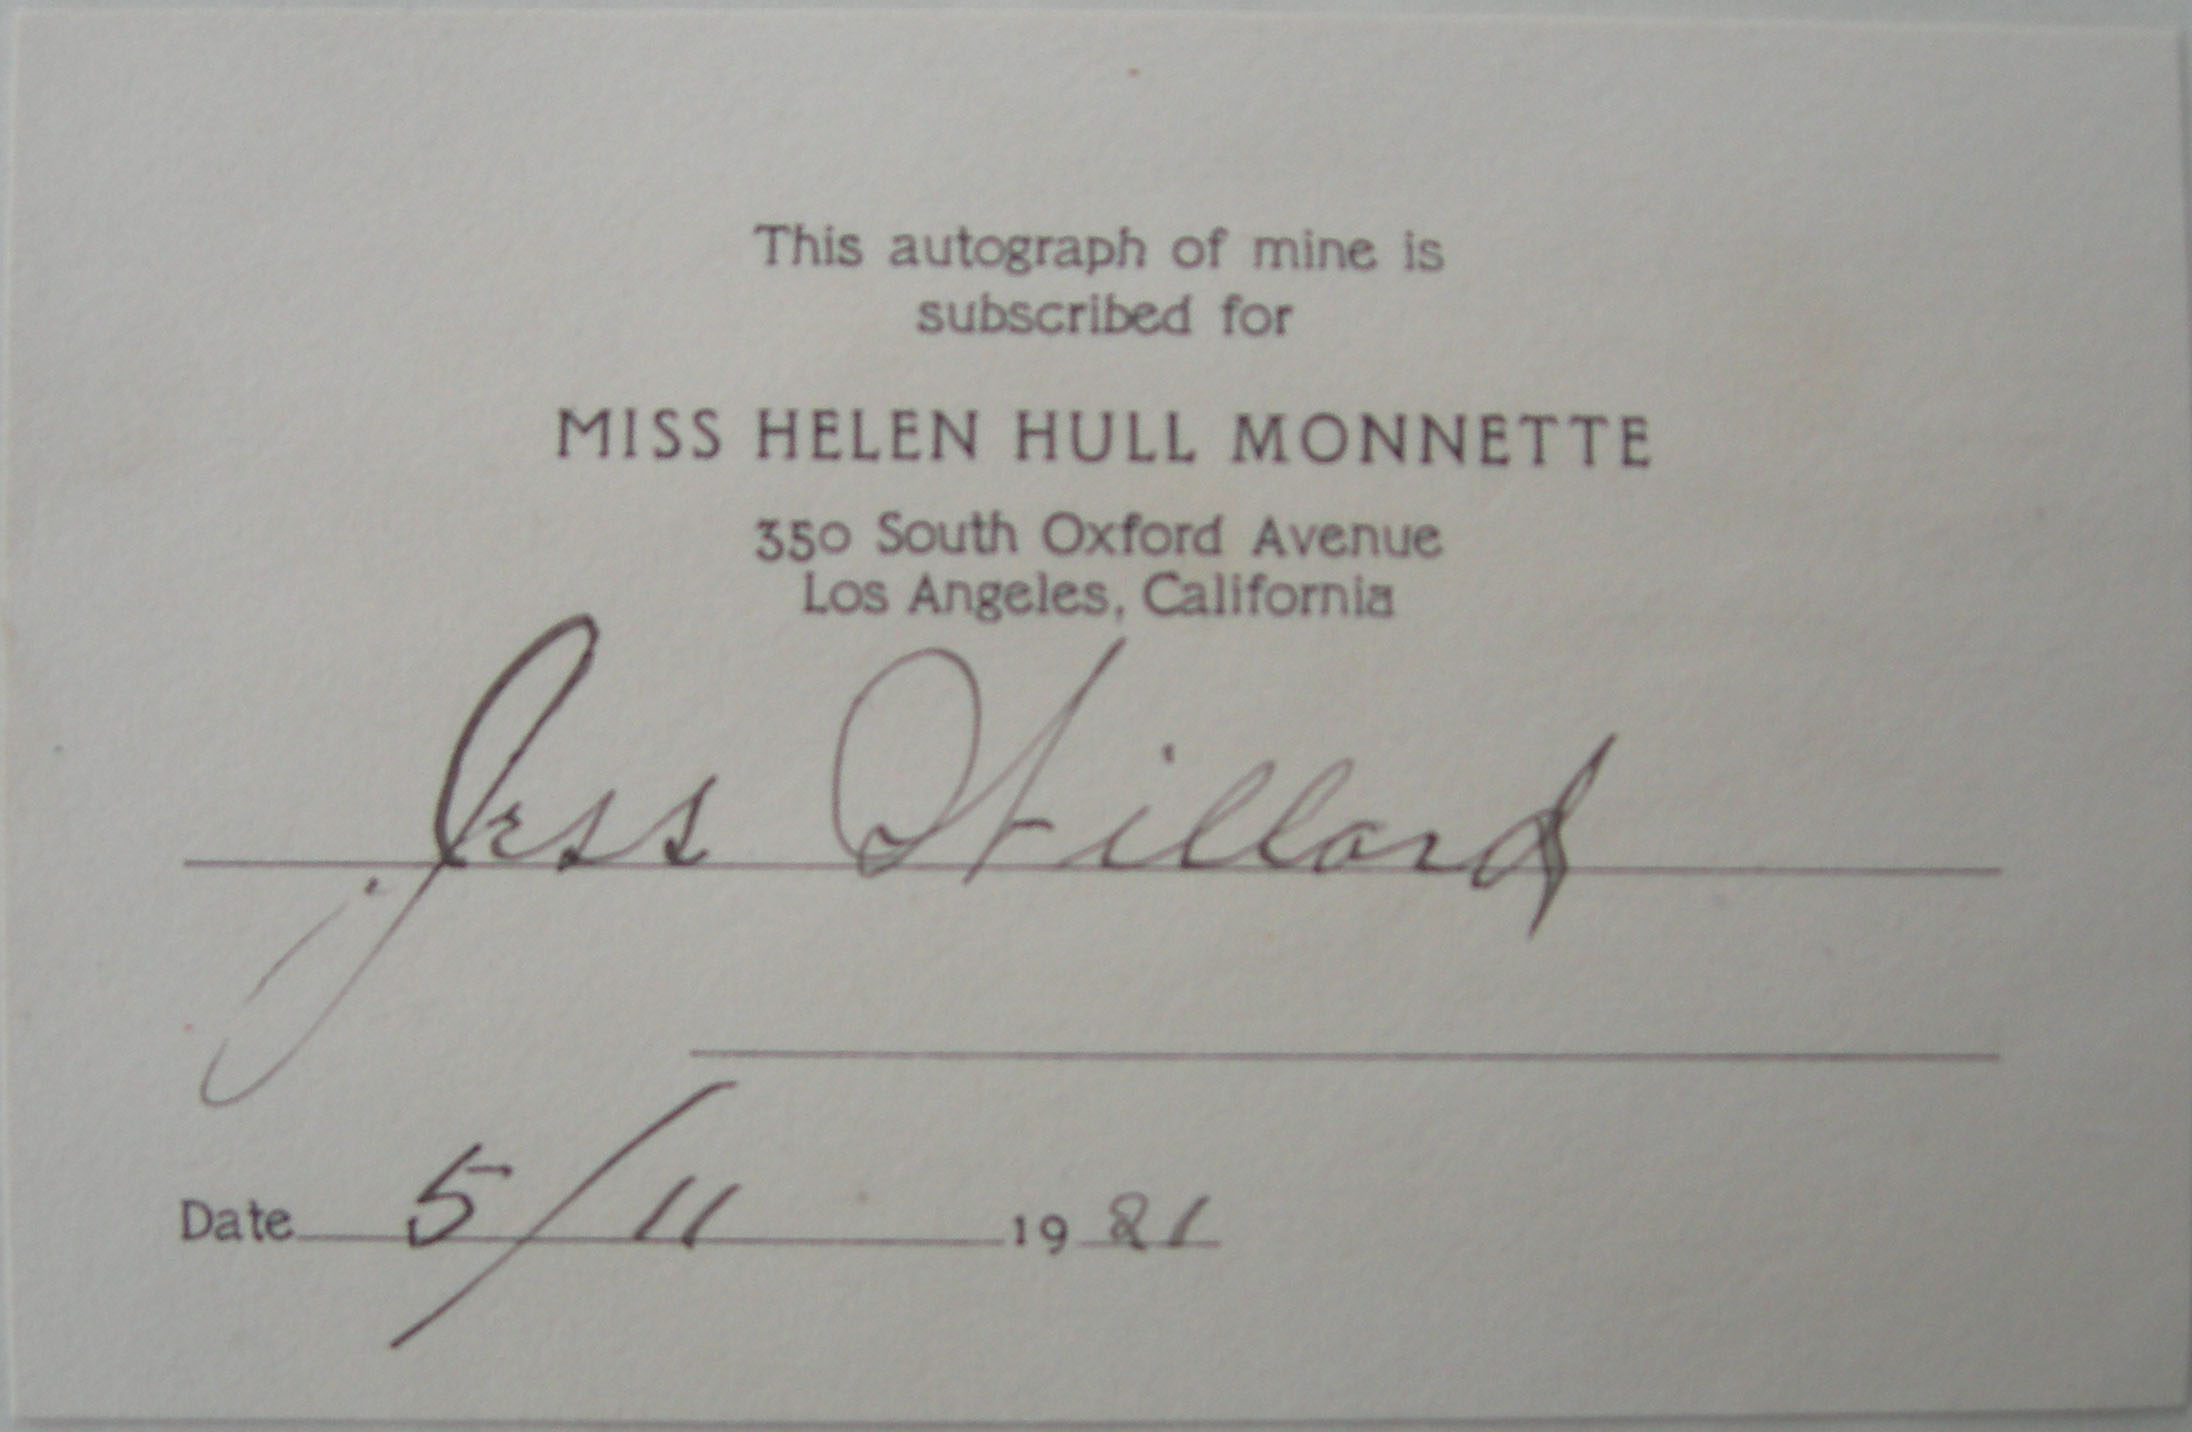 This autograph of mine is
subscribed for
MISS HELEN HULL MONNETTE
350 South Oxford Avenue
Los Angeles, California
Jess Willard
Date 5/11 1921